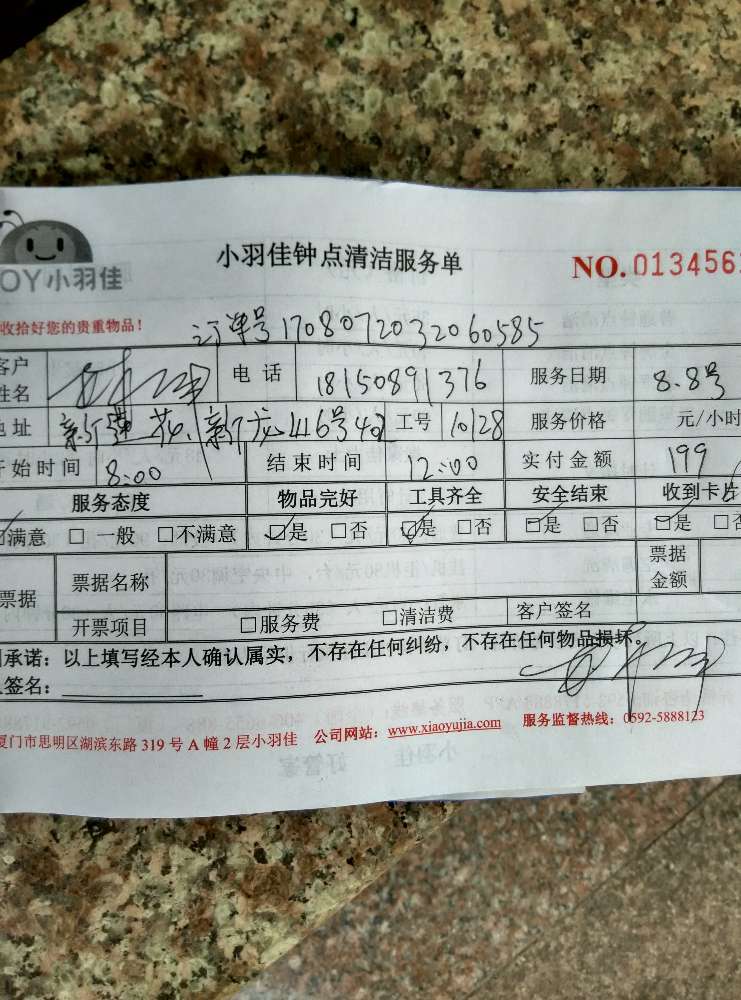 小羽佳钟点清洁服务单
NO.013456
OY小羽佳
收拾好您的贵重物品!
订单号1708072032060585
客户姓名 电话 18150891376 服务日期 8.8号
地址 工号 10128 服务价格 元/小时
开始时间 8:00 结束时间 12:00 实付金额 199
服务态度 物品完好 工具齐全 安全结束 收到卡片
☑满意 □一般 □不满意 ☑是 □否 ☑是 □否 ☑是 □否 ☑是 □否
票据 票据名称 票据金额
开票项目 □服务费 □清洁费 客户签名
承诺:以上填写经本人确认属实,不存在任何纠纷,不存在任何物品损坏。
签名:
厦门市思明区湖滨东路 319 号 A 幢 2 层小羽佳 公司网站:www.xiaoyujia.com 服务监督热线:0592-5888123